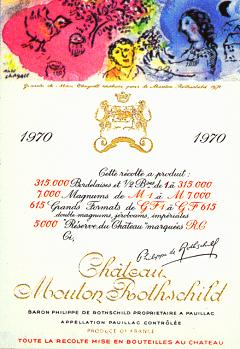 Marc
Chagall
1970
1970
Cette récolte a produit :
315.000 Bordelaises et ½ Bses de 1 à 315.000
7.000 Magnums de M 1 à M 7.000
615 Grands Formats de G F 1 à G F 615
double-magnums, jéroboams, impériales
5.000 "Réserve du Château" marquées R.C.
Ci,
Philippe de Rothschild
Château
Mouton Rothschild
BARON PHILIPPE DE ROTHSCHILD PROPRIÉTAIRE A PAUILLAC
APPELLATION PAUILLAC CONTRÔLÉE
PRODUCE OF FRANCE
TOUTE LA RÉCOLTE MISE EN BOUTEILLES AU CHÂTEAU